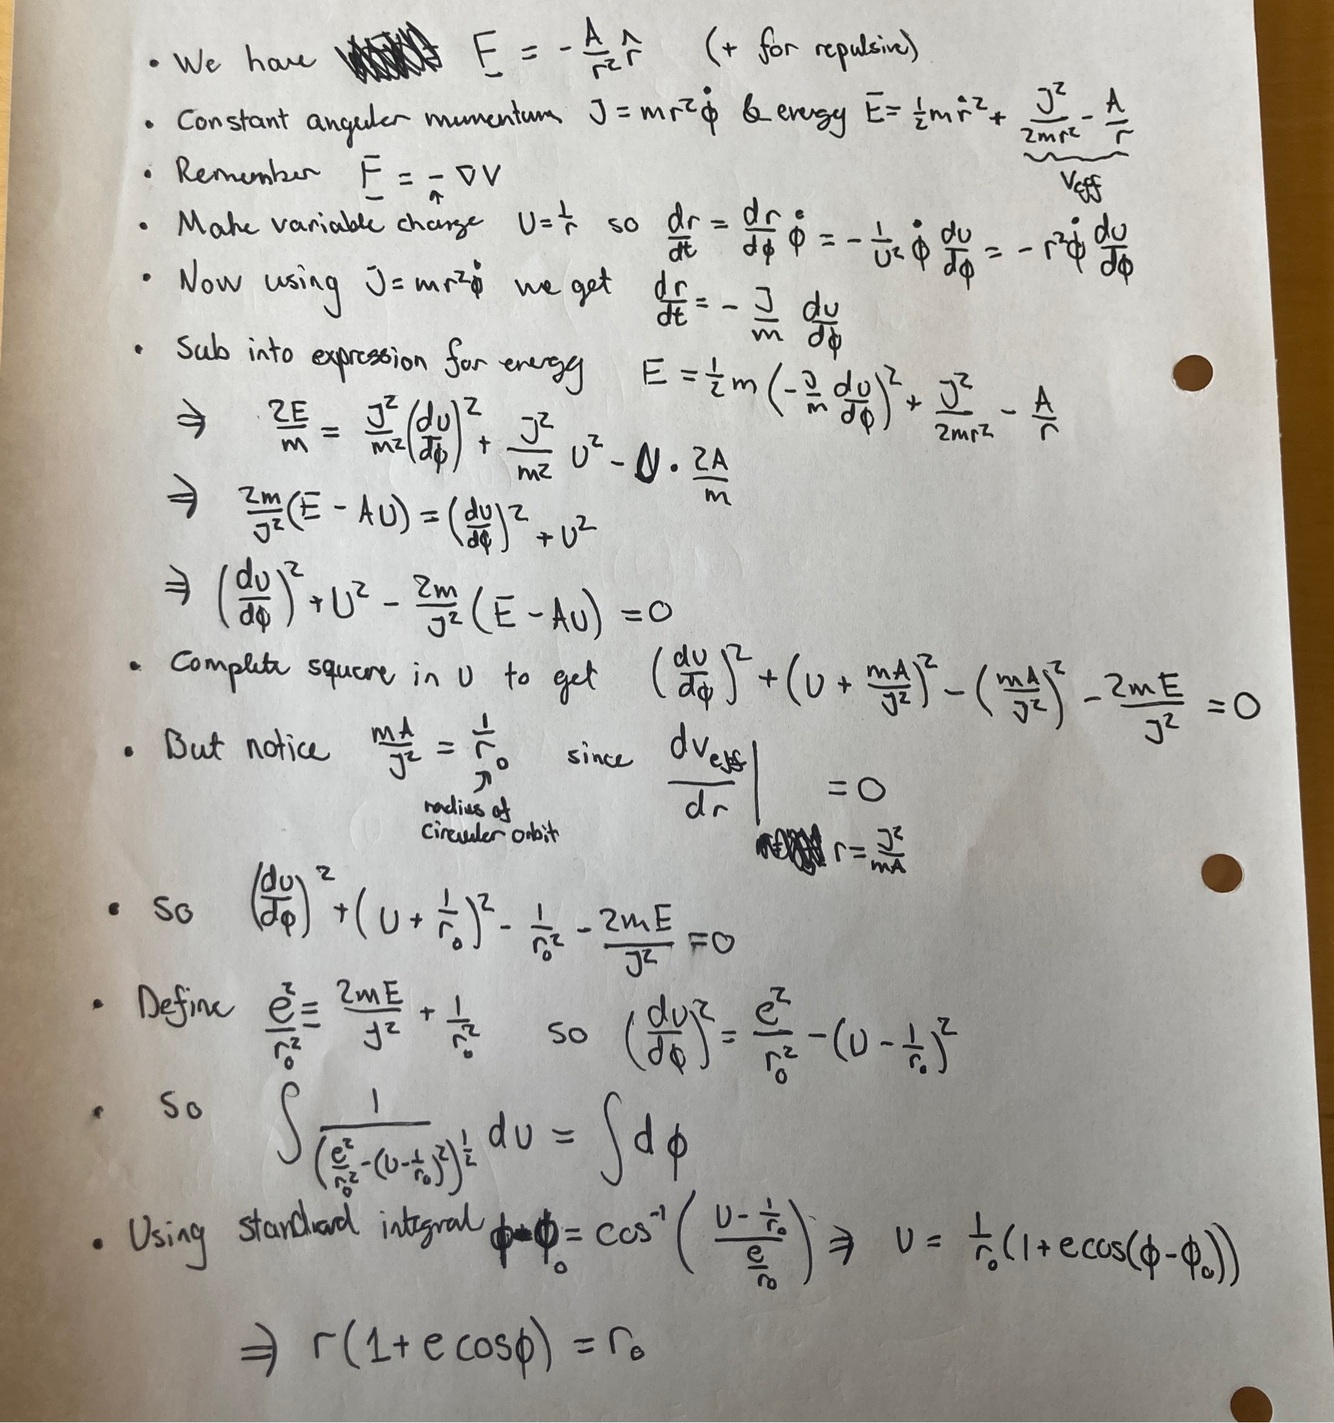 • We have F = - A/r² r̂ (+ for repulsive)
• Constant angular momentum J = mr²φ̇ & energy E = ½mṙ² + J²/2mr² - A/r
Veff
• Remember F = - ∇V
↑
• Make variable change U = 1/r so dr/dt = dr/dφ φ̇ = - 1/U² φ̇ dU/dφ = - r²φ̇ dU/dφ
• Now using J = mr²φ̇ we get dr/dt = - J/m dU/dφ
• Sub into expression for energy E = ½m(-J/m dU/dφ)² + J²/2mr² - A/r
⇒ 2E/m = J²/m² (dU/dφ)² + J²/m² U² - U · 2A/m
⇒ 2m/J² (E - AU) = (dU/dφ)² + U²
⇒ (dU/dφ)² + U² - 2m/J² (E - AU) = 0
• Complete square in U to get (dU/dφ)² + (U + mA/J²)² - (mA/J²)² - 2mE/J² = 0
• But notice mA/J² = 1/r₀ since dVeff/dr | = 0
r = J²/mA
↑
radius of
circular orbit
• So (dU/dφ)² + (U + 1/r₀)² - 1/r₀² - 2mE/J² = 0
• Define e²/r₀² ≡ 2mE/J² + 1/r₀² so (dU/dφ)² = e²/r₀² - (U - 1/r₀)²
• So ∫ 1/(e²/r₀² - (U - 1/r₀)²)^½ dU = ∫ dφ
• Using standard integral φ - φ₀ = cos⁻¹((U - 1/r₀)/(e/r₀)) ⇒ U = 1/r₀ (1 + e cos(φ - φ₀))
⇒ r(1 + e cosφ) = r₀